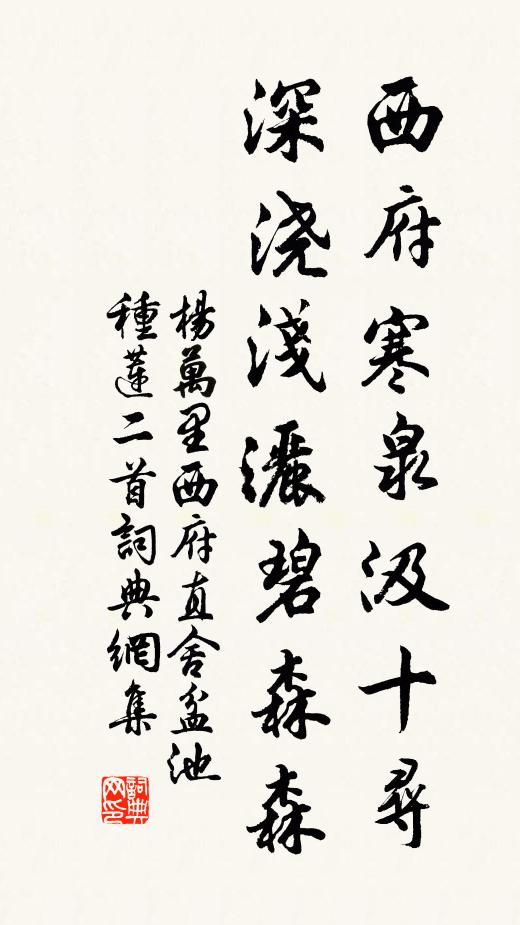 西府寒泉汲十尋
深浇淺灑碧森森
楊萬里西府直舍盆池
種蓮二首詞典網集
詞典
网印